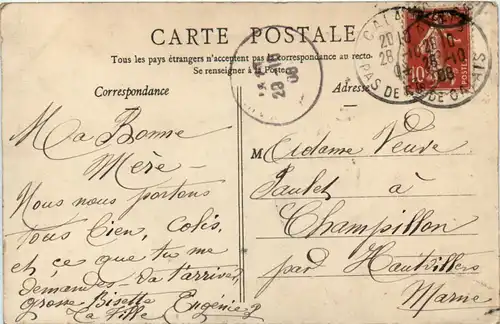 CARTE POSTALE
Tous les pays étrangers n'acceptent pas la Correspondance au recto.
Se renseigner à la Poste
Correspondance
Adresse
Ma Bonne
Mère
Nous nous portons
tous bien, Colis
et ce que tu me
demandes va t'arriver
grosse Bisette
Ta Fille Eugénie
Madame Veuve
Paulet à
Champillon
par Hautvillers
Marne
28 08
PAS DE CALAIS
28-10
08
10
POSTES